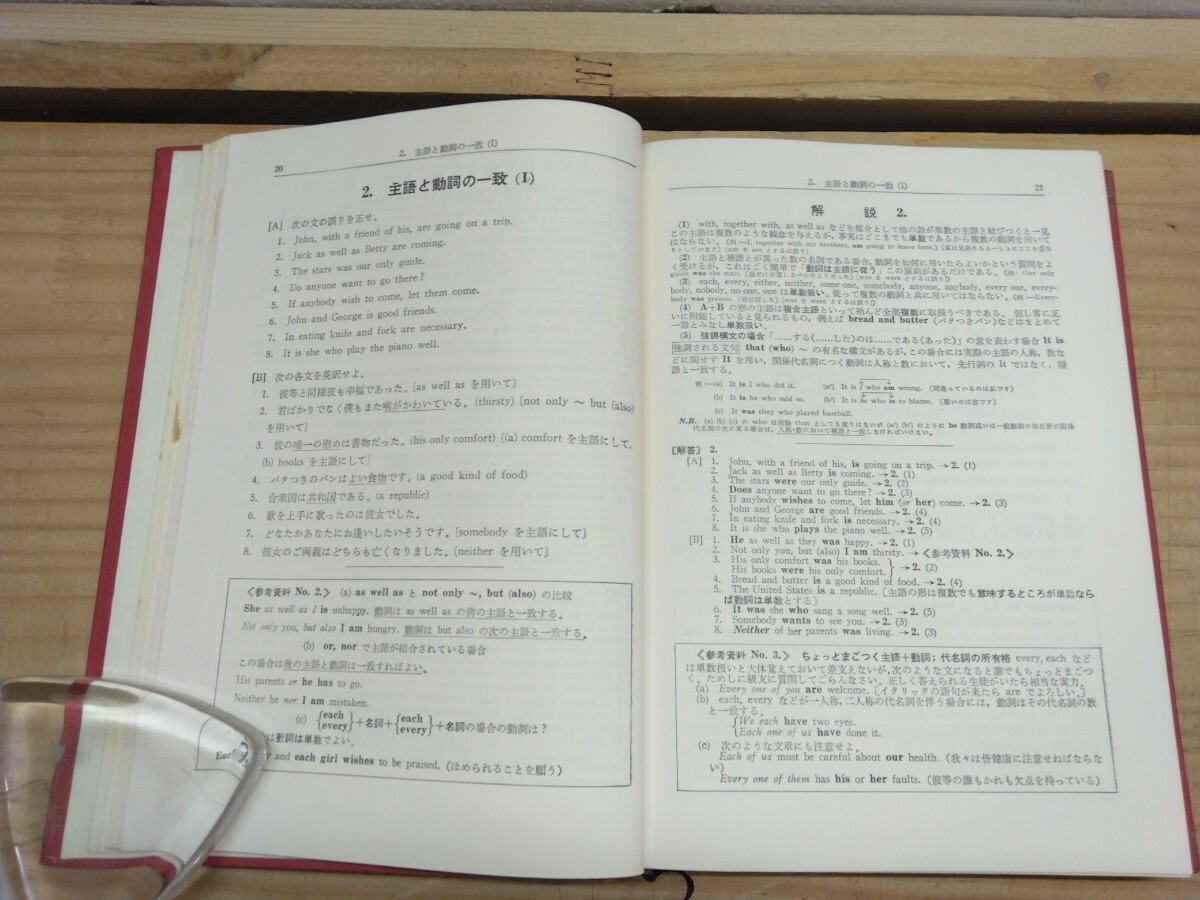 20
2. 主語と動詞の一致 (I)
2. 主語と動詞の一致 (I)
[A] 次の文の誤りを正せ。
1. John, with a friend of his, are going on a trip.
2. Jack as well as Betty are coming.
3. The stars was our only guide.
4. Do anyone want to go there?
5. If anybody wish to come, let them come.
6. John and George is good friends.
7. In eating knife and fork are necessary.
8. It is she who play the piano well.
[B] 次の各文を英訳せよ。
1. 彼等と同様彼も幸福であった。[as well as を用いて]
2. 君ばかりでなく僕もまた喉がかわいている。(thirsty) [not only ~ but (also)
を用いて]
3. 彼の唯一の慰めは書物だった。(his only comfort) [(a) comfort を主語にして,
(b) books を主語にして]
4. バタつきのパンはよい食物です。(a good kind of food)
5. 合衆国は共和国である。(a republic)
6. 歌を上手に歌ったのは彼女でした。
7. どなたかあなたにお逢いしたいそうです。[somebody を主語にして]
8. 彼女のご両親はどちらも亡くなりました。[neither を用いて]
〈参考資料 No. 2.〉 (a) as well as と not only ~, but (also) の比較
She as well as I is unhappy. 動詞は as well as の前の主語と一致する。
Not only you, but also I am hungry. 動詞は but also の次の主語と一致する。
(b) or, nor で主語が結合されている場合
この場合は後の主語と動詞は一致すればよい。
His parents or he has to go.
Neither he nor I am mistaken.
(c) {each every}+名詞+{each every}+名詞の場合の動詞は?
は動詞は単数でよい。
Each
and each girl wishes to be praised. (ほめられることを願う)
2. 主語と動詞の一致 (I)
21
解 説 2.
(1) with, together with, as well as などを媒介として他の語が単数の主語と結びつくと一見
この主語は複数のような観念を与えるが, 事実はどこまでも単数であるから複数の動詞を用いて
はならない。(例:—I, together with my brothers, am going to leave here.)
(2) 主語と補語とが異った数の名詞である場合, 動詞を如何に用いたらよいかという質問をよ
く受けるが, これはごく簡単で「動詞は主語に従う」この原則があるだけである。(例: Our only
guide was the stars.
(3) each, every, either, neither, some one, somebody, anyone, anybody, every one, every-
body, nobody, no one, one は単数扱い。従って複数の動詞と共に用いてはならない。(例:—Every-
body was present.
(4) A+B の形の主語は複合主語といって殆んど全部複数に取扱うべきである。 但し常に互
いに附随していると見られるもの, 例えば bread and butter (バタつきパン) などはまとめて
一語とみなし単数扱い。
(5) 強調構文の場合「……する(……した)のは……である(あった)」の意を表わす場合 It is
強調される文句 that (who) ~ の有名な構文があるが, この場合には実際の主語の人称, 数な
どに関せず It を用い, 関係代名詞につく動詞は人称と数において, 先行詞の It ではなく, 補
語と一致する。
例:—(a) It is I who did it. (a') It is I who am wrong. (間違っているのは私です)
(b) It is he who said so. (b') It is he who is to blame. (悪いのは彼です)
(c) It was they who played baseball.
N.B. (a) (b) (c) の who は勿論 that としても差りはないが (a') (b') のように be 動詞或いは一般動詞の現在形が関係
代名詞の次に来る場合は, 人称・数において補語と一致しなければいけない。
〔解答〕 2.
[A] 1. John, with a friend of his, is going on a trip. →2. (1)
2. Jack as well as Betty is coming. →2. (1)
3. The stars were our only guide. →2. (2)
4. Does anyone want to go there? →2. (3)
5. If anybody wishes to come, let him (or her) come. →2. (3)
6. John and George are good friends. →2. (4)
7. In eating knife and fork is necessary. →2. (4)
8. It is she who plays the piano well. →2. (5)
[B] 1. He as well as they was happy. →2. (1)
2. Not only you, but (also) I am thirsty. →〈参考資料 No. 2.〉
3. His only comfort was his books.
His books were his only comfort. } →2. (2)
4. Bread and butter is a good kind of food. →2. (4)
5. The United States is a republic. [主語の形は複数でも意味するところが単数なら
ば動詞は単数とする]
6. It was she who sang a song well. →2. (5)
7. Somebody wants to see you. →2. (3)
8. Neither of her parents was living. →2. (3)
〈参考資料 No. 3.〉 ちょっとまごつく主語+動詞; 代名詞の所有格 every, each など
は単数扱いと大体覚えておいて差支えないが, 次のような文になると誰でもちょっとまごつ
く, ためしに級友に質問してごらんなさい。正しく答えられる生徒がいたら相当な実力。
(a) Every one of you are welcome. [イタリックの語句が来たら are でよろしい。]
(b) each, every などが一人称, 二人称の代名詞を伴う場合には, 動詞はその代名詞の数
と一致する。
{We each have two eyes.
{Each one of us have done it.
(c) 次のような文章にも注意せよ。
Each of us must be careful about our health. (我々は皆健康に注意せねばならな
い)
Every one of them has his or her faults. (彼等の誰もかれも欠点を持っている)